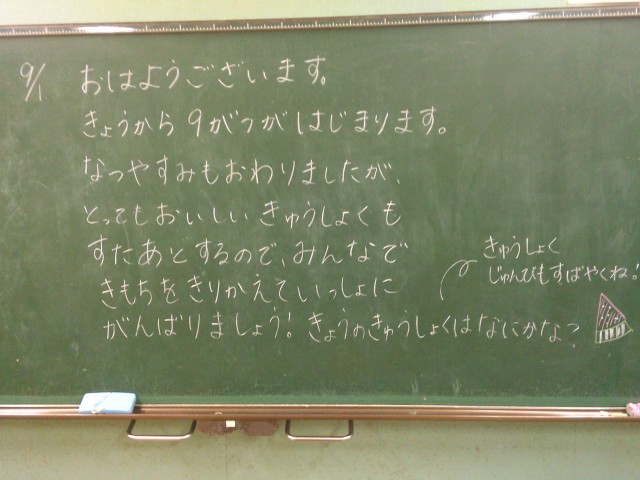 9/1
おはようございます。
きょうから9がつがはじまります。
なつやすみもおわりましたが、
とってもおいしいきゅうしょくも
すたあとするので、みんなで
きもちをきりかえていっしょに
がんばりましょう！きょうのきゅうしょくはなにかな？
きゅうしょく
じゅんびもすばやくね！